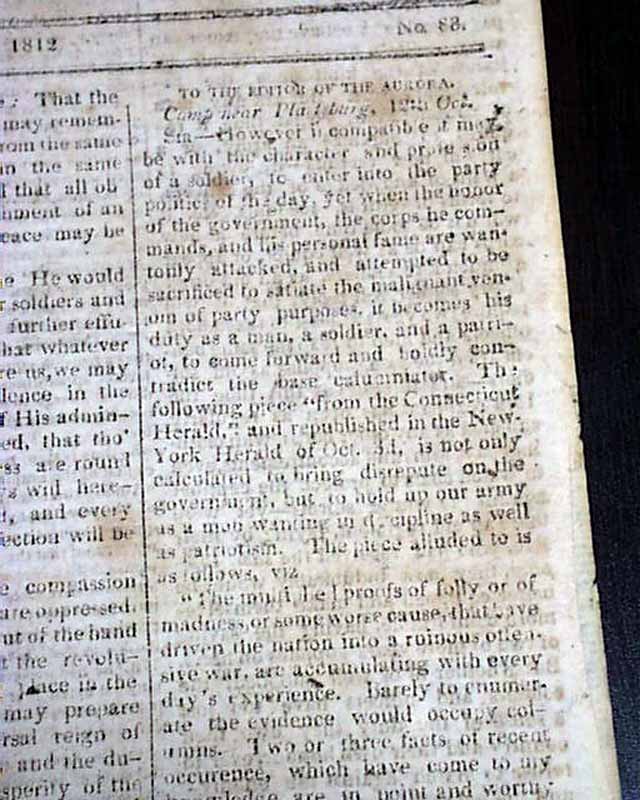 1812
No. 83.
: That the
may remem-
from the same
in the same
that all ob
ment of an
eace may be
He would
soldiers and
further effu-
hat whatever
re us, we may
lence in the
f His admin-
ed, that tho'
ss are round
will here-
, and every
ection will be
compassion
are oppressed.
ut of the hand
t the revolu-
place in the
may prepare
rsal reign of
and the du-
sperity of the
TO THE EDITOR OF THE AURORA.
Camp near Plattsburg, 12th Oct.
SIR—However incompatible it may
be with the character and profession
of a soldier, to enter into the party
politics of the day, yet when the honor
of the government, the corps he com-
mands, and his personal fame are wan-
tonly attacked, and attempted to be
sacrificed to satiate the malignant ven-
om of party purposes, it becomes his
duty as a man, a soldier, and a patri-
ot, to come forward and boldly con-
tradict the base calumniator. The
following piece "from the Connecticut
Herald," and republished in the New-
York Herald of Oct. 3d, is not only
calculated to bring disrepute on the
government, but to hold up our army
as a mob wanting in discipline as well
as patriotism. The piece alluded to is
as follows, viz
"The proofs of folly or of
madness, or some worse cause, that have
driven the nation into a ruinous offen-
sive war, are accumulating with every
day's experience. Barely to enumer-
ate the evidence would occupy col-
umns. Two or three facts of recent
occurence, which have come to my
knowledge are in point and worthy